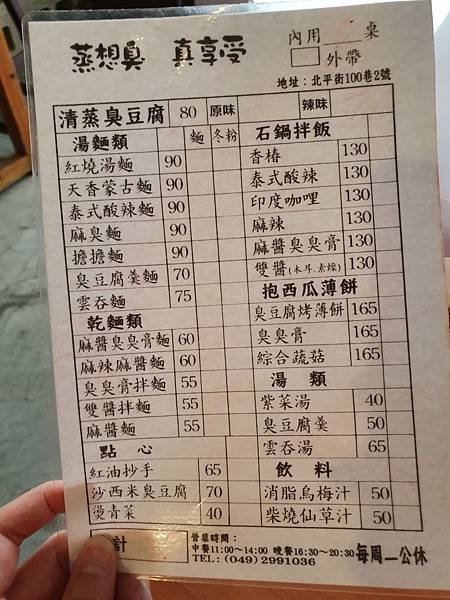 蒸想臭 真享受
內用____桌
□外帶
地址：北平街100巷2號
清蒸臭豆腐 80 原味 辣味
湯麵類 麵 冬粉
紅燒湯麵 90
天香蒙古麵 90
泰式酸辣麵 90
麻臭麵 90
擔擔麵 90
臭豆腐羹麵 70
雲吞麵 75
乾麵類
麻醬臭臭膏麵 60
麻辣麻醬麵 60
臭臭膏拌麵 55
雙醬拌麵 55
麻醬麵 55
點心
紅油抄手 65
沙西米臭豆腐 70
燙青菜 40
石鍋拌飯
香椿 130
泰式酸辣 130
印度咖哩 130
麻辣 130
麻醬臭臭膏 130
雙醬(木耳.素燥) 130
抱西瓜薄餅
臭豆腐烤薄餅 165
臭臭膏 165
綜合蔬菇 165
湯類
紫菜湯 40
臭豆腐羹 50
雲吞湯 65
飲料
消脂烏梅汁 50
柴燒仙草汁 50
計
營業時間：
中餐11:00~14:00 晚餐16:30~20:30
TEL：(049)2991036
每周一公休